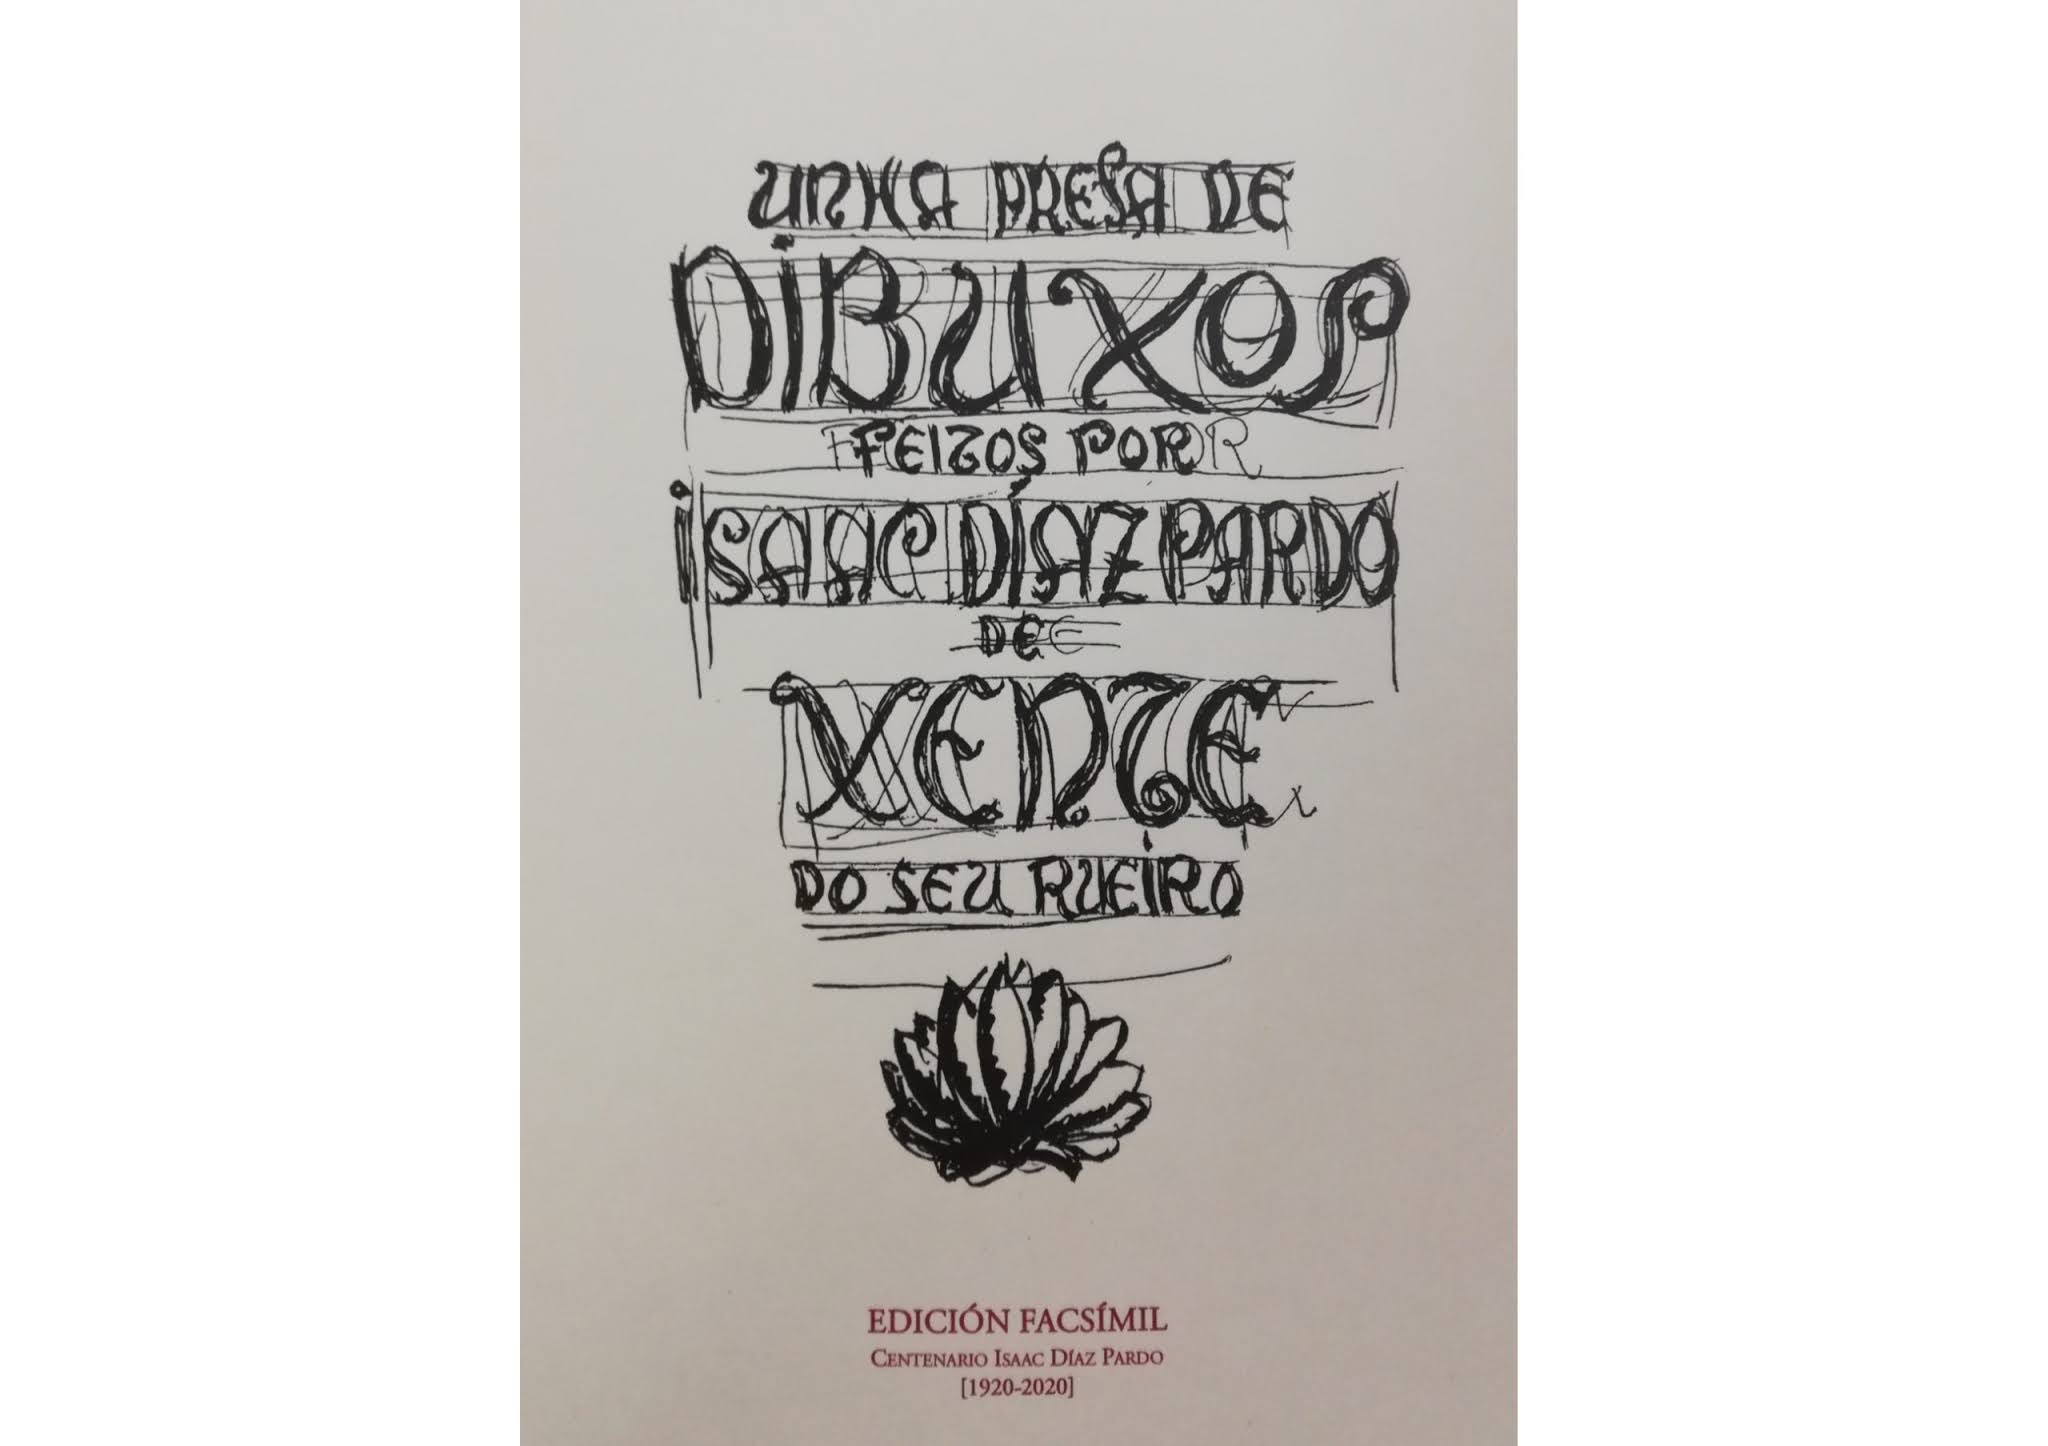 UNHA PRESA DE
DIBUXOS
FEITOS POR
ISAAC DÍAZ PARDO
DE
XENTE
DO SEU RUEIRO
EDICIÓN FACSÍMIL
CENTENARIO ISAAC DÍAZ PARDO
[1920-2020]